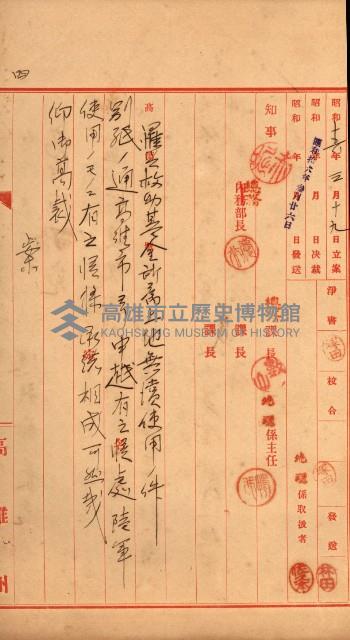 昭和十六年三月十九日立案
昭和 年 月 日決裁
昭和 年 月 日發送
昭和拾六年參月廿六日
淨書
校合
發送
知事
總務
內務部長
總 課長
課長
課長
地理係主任
地理係取扱者
高
罹災救助基金所屬土地無償使用ノ件
別紙ノ通高雄市ヨリ申越有之候處陸軍
使用ノモノニ有之候條承認相成可然哉
仰御高裁
案
四
高雄州
高雄市立歷史博物館
KAOHSIUNG MUSEUM OF HISTORY